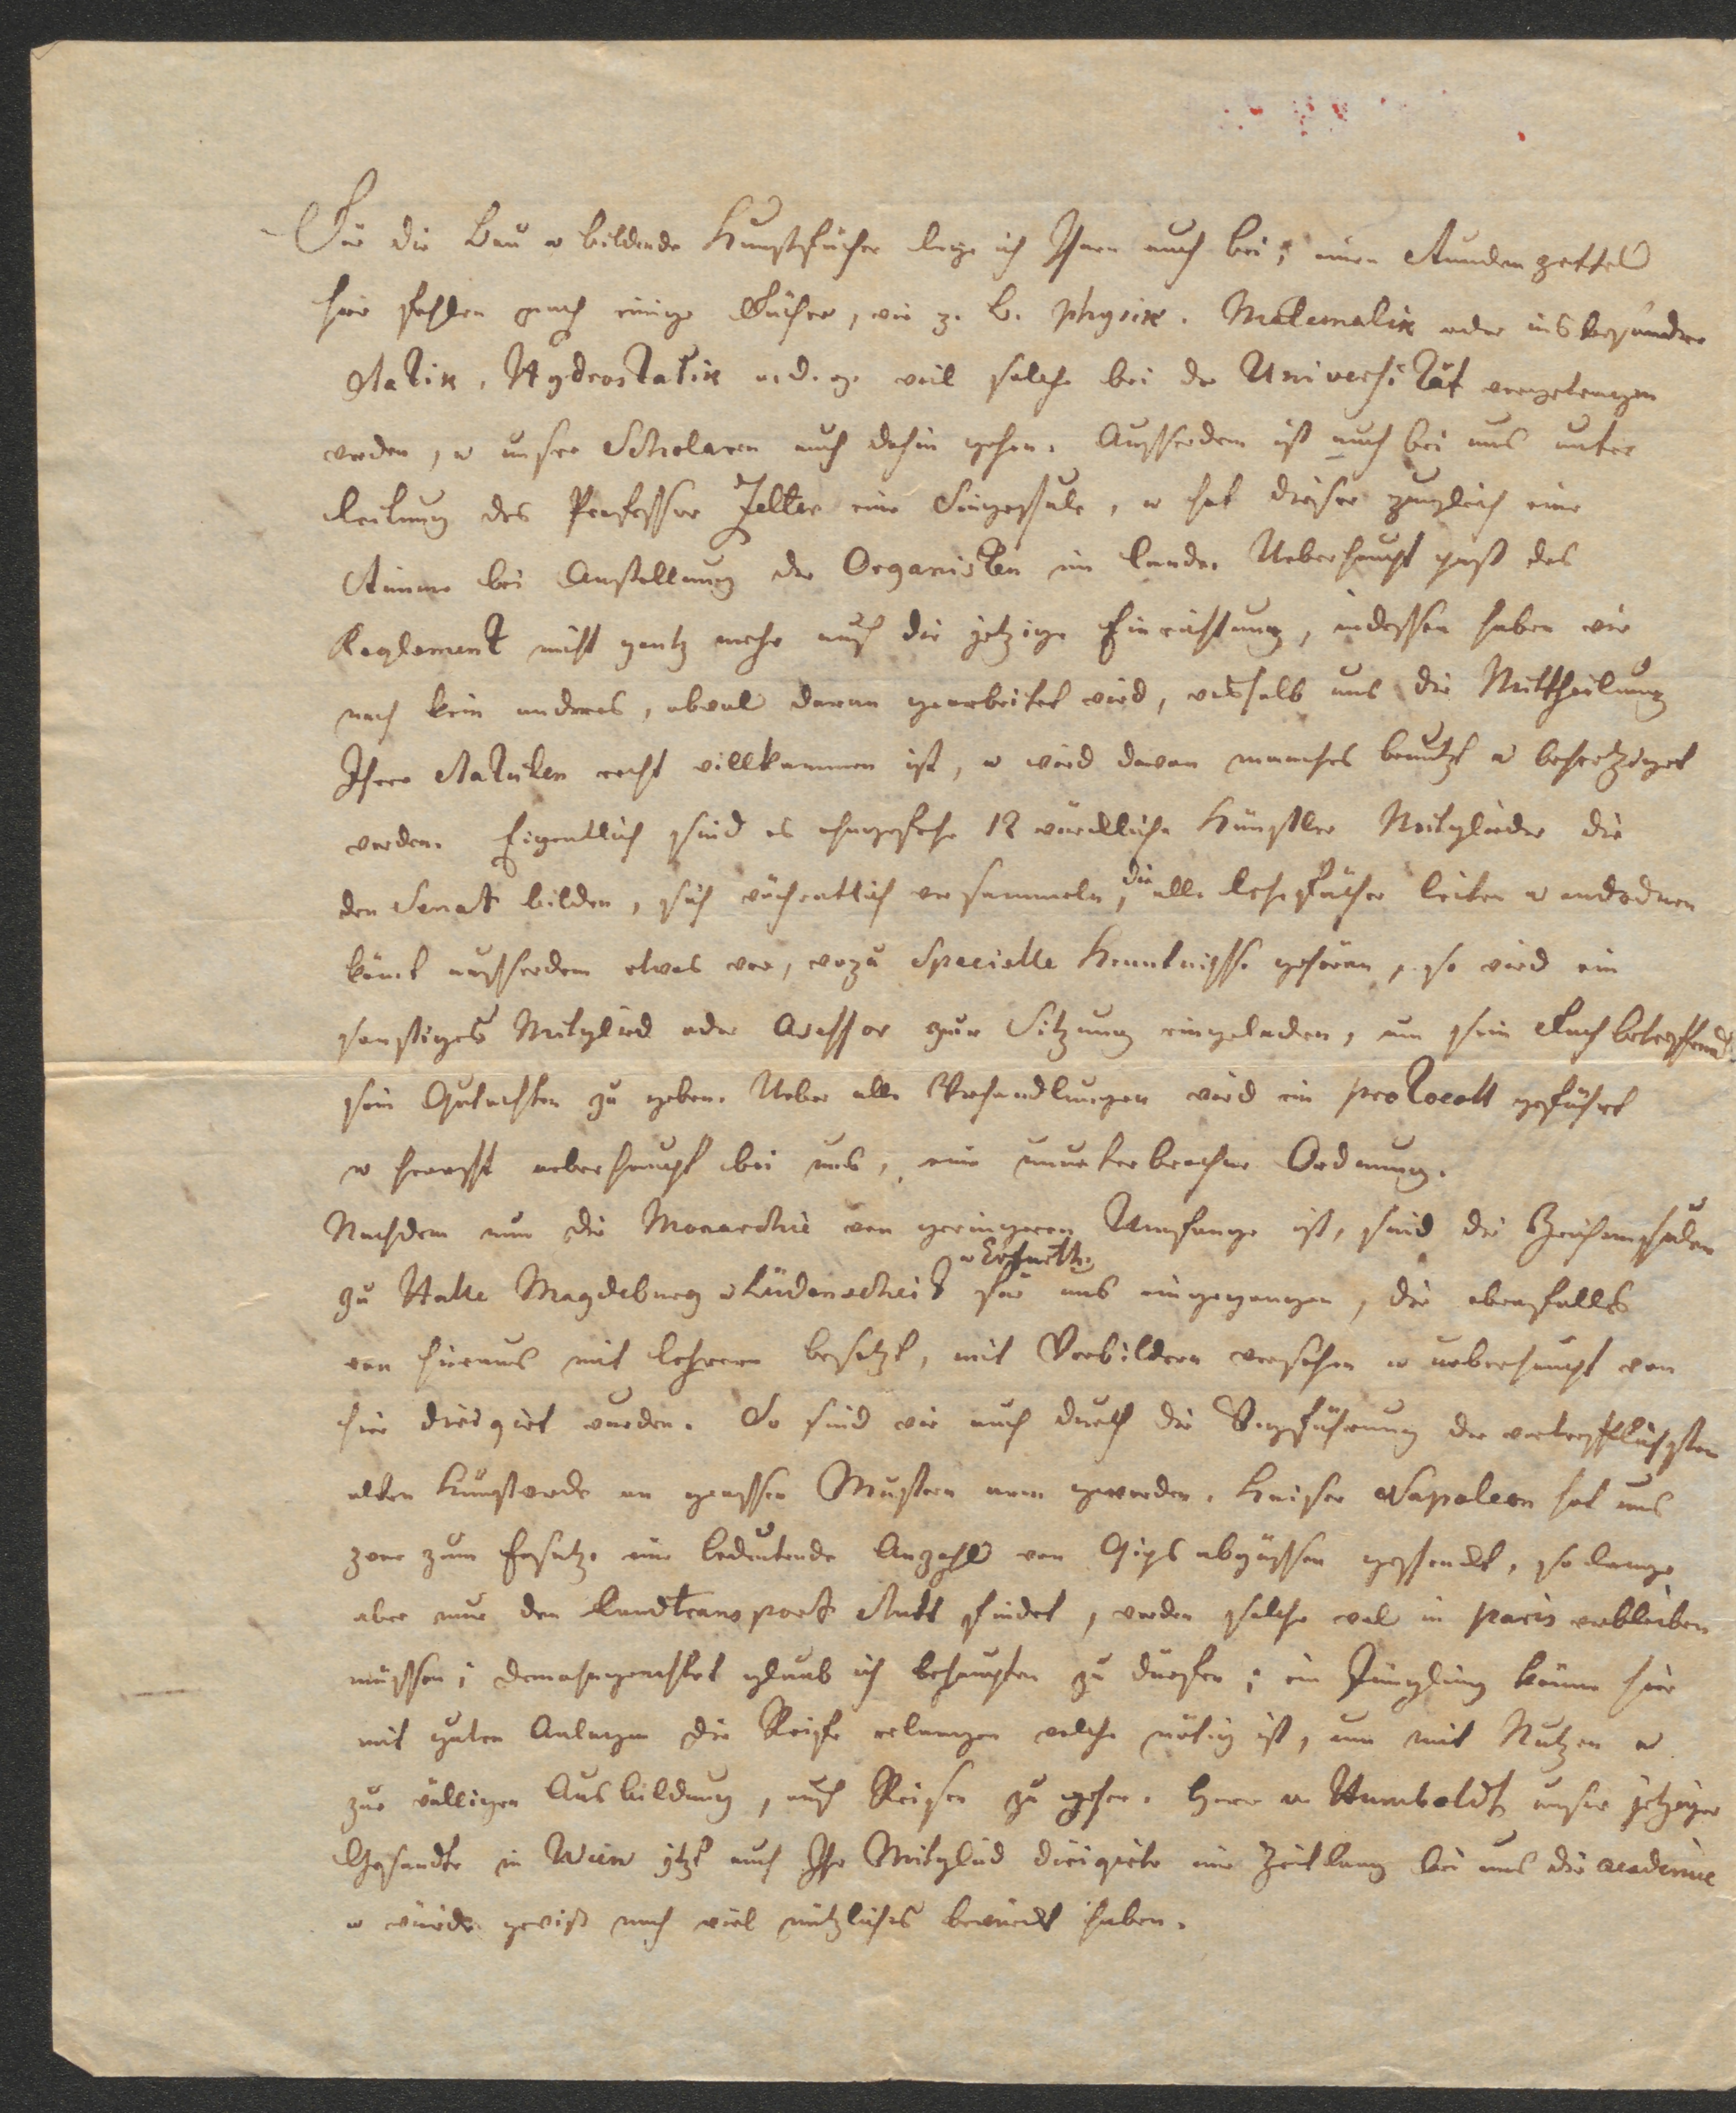 Für die Bau u bildende Kunstfächer lege ich Ihnen auch bei; einen Stundenzettel
hier fehlen noch einige Fächer, wie z. B. Physik. Matematik oder insbesondre
Statik, Hydrostatik u. d. g. weil solche bei der Universität vorgetragen
werden, u unsere Scholaren auch dahin gehen. Ausserdem ist auch bei uns unter
Leitung des Professor Zelter eine Singeschule, u hat dieser zugleich eine
Stimme bei Anstellung der Organisten im Lande. Ueberhaupt past das
Reglement nicht gantz mehr auf die jetzige Einrichtung, indessen haben wir
noch kein anderes, obwol daran gearbeitet wird, weshalb uns die Mittheilung
Ihrer Statuten recht willkommen ist, u wird davon manches benutzt u beherziget
werden. Eigentlich sind es ohngefehr 12 würckliche Künstler Mitglieder die
den Senat bilden, sich wöchentlich versammeln, die alle Lehrfächer leiten u andordnen
kömt ausserdem etwas vor, wozu Specielle Kenntnisse gehören, so wird ein
sonstiges Mitglied oder Assessor zur Sitzung eingeladen, um sein Fach betreffend
sein Gutachten zu geben. Ueber alle Verhandlungen wird ein protocoll geführt
u herscht ueberhaupt bei uns, eine ununterbrochne Ordnung.
Nachdem nun die Monarchie von geringeren Umfange ist, sind die Zeichenschulen
zu Halle Magdeburg u Lüdenscheit u Erfurth. für uns eingegangen, die ebenfalls
von hieraus mit Lehrern besetzt, mit Vorbildern versehen u ueberhaupt von
hier dirigirt wurden. So sind wir auch durch die Wegführung der vortrefflichsten
alten Kunstwerke an grossen Mustern arm geworden. Kaiser Napoleon hat uns
zwar zum Ersatze eine bedeutende Anzahl von Gipsabgüssen geschenckt, so lange
aber nur den Landtransport Statt findet, werden solche wol in Paris verbleiben
müssen; demohngeachtet glaub ich behaupten zu dürfen; ein Jüngling könne hier
mit guten Anlagen die Reife erlangen welche nötig ist, um mit Nutzen u
zur völligen Ausbildung, auf Reisen zu gehen. Herr v. Humboldt unser jetziger
Gesandte in Wien jtzt auch Ihr Mitglied dirigirte eine Zeitlang bei uns die academie
u würde gewiß noch viel nützliches bewürckt haben.